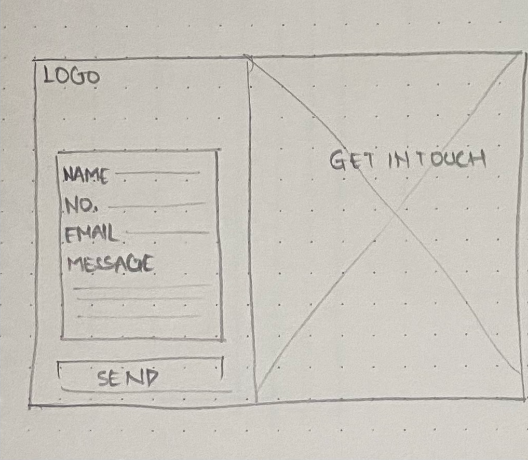 LOGO
NAME
NO.
EMAIL
MESSAGE
SEND
GET IN TOUCH